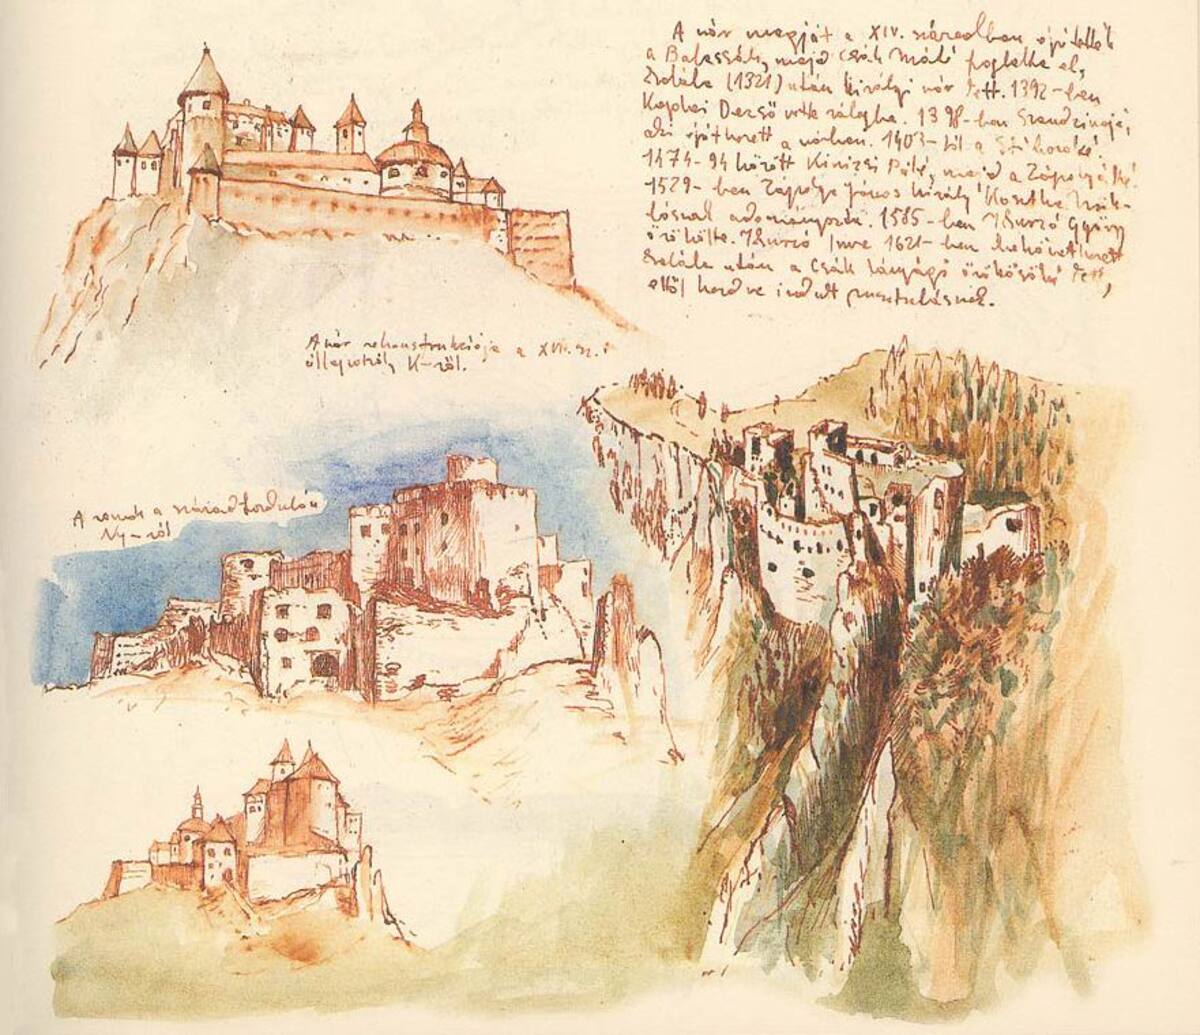 A vár magját a XIV. században építették
a Balassák, majd Csák Máté foglalta el,
halála (1321) után királyi vár lett. 1392-ben
Dezső vette zálogba. 1398-ban
a várban. 1403-tól a
1474-94 között Kinizsi Pálé, majd a Zápolyaiké.
1529-ben Zápolya János király Kosztka Mik-
lósnak adományozta. 1585-ben Thurzó György
örökölte. Thurzó Imre 1621-ben bekövetkezett
halála után a család lányági örököseié lett,
ettől kezdve indult pusztulásnak.
A vár rekonstrukciója a XVII. sz.-i
állapotról K-ről.
A romok a századfordulón
Ny-ról